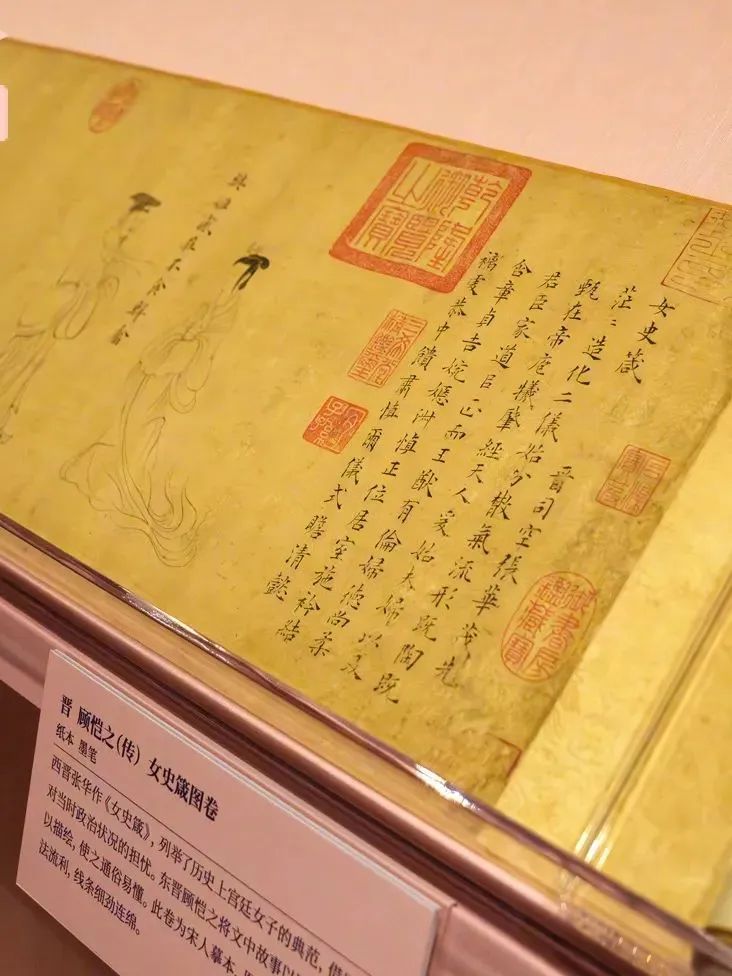 女史箴
晋司空張華茂先
茫〻造化二儀始分散氣流形既陶既
甄在帝庖犧肇經天人爰始夫婦以及
君臣家道㠯正而王猷有倫婦德尚柔
含章貞吉婉嫕淑慎正位居室施衿結
褵虔恭中饋肅慎爾儀式瞻清懿
御書房鑑藏寶
乾隆御覽之寶
三希堂精鑑璽
宜子孫
樊姬感莊不食鮮禽
晋 顾恺之(传) 女史箴图卷
纸本 墨笔
西晋张华作《女史箴》,列举了历史上宫廷女子的典范,借
对当时政治状况的担忧。东晋顾恺之将文中故事以
以描绘,使之通俗易懂。此卷为宋人摹本,
法流利,线条细劲连绵。